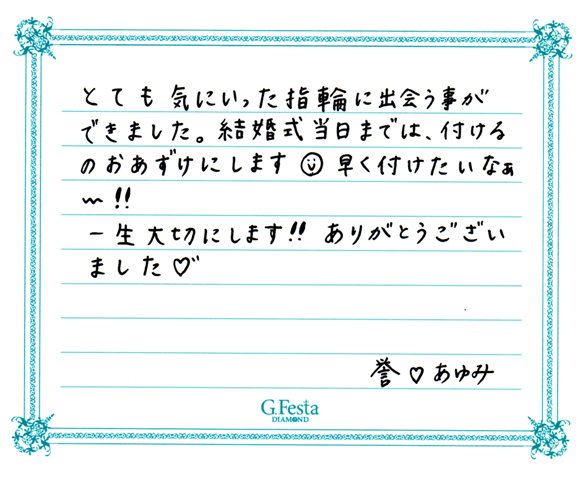 とても気にいった指輪に出会う事が
できました。結婚式当日までは、付ける
のおあずけにします☺早く付けたいなぁ
〜!!
一生大切にします!!ありがとうござい
ました♡
誉♡あゆみ
G.Festa
DIAMOND